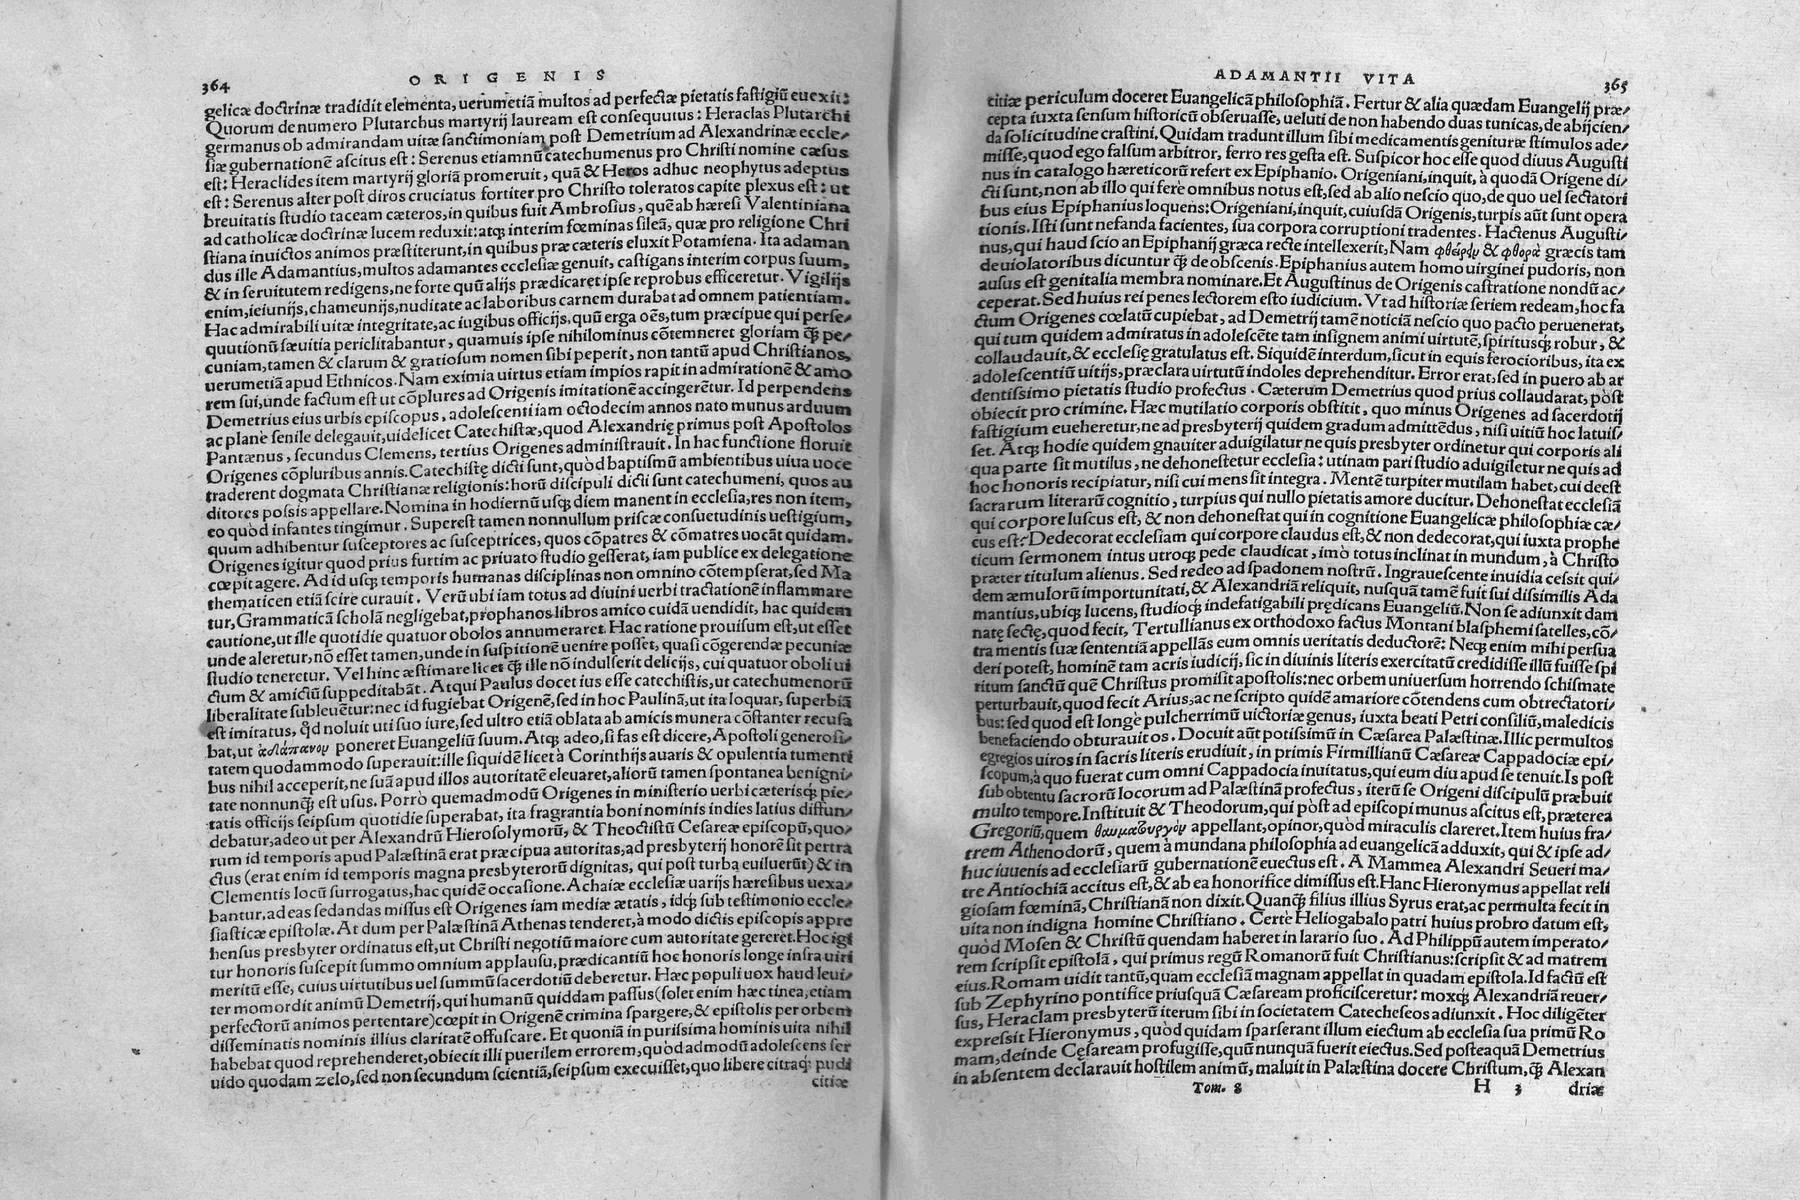 364
ORIGENIS
gelicæ doctrinæ tradidit elementa, uerumetiã multos ad perfectæ pietatis fastigiũ euexit:
Quorum de numero Plutarchus martyrij lauream est consequutus: Heraclas Plutarchi
germanus ob admirandam uitæ sanctimoniam post Demetrium ad Alexandrinæ eccle/
siæ gubernationẽ ascitus est: Serenus etiamnũ catechumenus pro Christi nomine cæsus
est: Heraclides item martyrij gloriã promeruit, quã & Heros adhuc neophytus adeptus
est: Serenus alter post diros cruciatus fortiter pro Christo toleratos capite plexus est: ut
breuitatis studio taceam cæteros, in quibus fuit Ambrosius, quẽ ab hæresi Valentiniana
ad catholicæ doctrinæ lucem reduxit: atq; interim fœminas sileã, quæ pro religione Chri
stiana inuictos animos præstiterunt, in quibus præ cæteris eluxit Potamiena. Ita adaman
dus ille Adamantius, multos adamantes ecclesiæ genuit, castigans interim corpus suum,
& in seruitutem redigens, ne forte quũ alijs prædicaret ipse reprobus efficeretur. Vigilijs
enim, ieiunijs, chameunijs, nuditate ac laboribus carnem durabat ad omnem patientiam.
Hac admirabili uitæ integritate, ac iugibus officijs, quũ erga oẽs, tum præcipue qui perse/
quutionũ sæuitia periclitabantur, quamuis ipse nihilominus cõtemneret gloriam q̃ pe/
cuniam, tamen & clarum & gratiosum nomen sibi peperit, non tantũ apud Christianos,
uerumetiã apud Ethnicos. Nam eximia uirtus etiam impios rapit in admirationẽ & amo
rem sui, unde factum est ut cõplures ad Origenis imitationẽ accingerẽtur. Id perpendens
Demetrius eius urbis episcopus, adolescenti iam octodecim annos nato munus arduum
ac plane senile delegauit, uidelicet Catechistæ, quod Alexandrię primus post Apostolos
Pantænus, secundus Clemens, tertius Origenes administrauit. In hac functione floruit
Origenes cõpluribus annis. Catechistę dicti sunt, quòd baptismũ ambientibus uiua uoce
traderent dogmata Christianæ religionis: horũ discipuli dicti sunt catechumeni, quos au
ditores possis appellare. Nomina in hodiernũ usq; diem manent in ecclesia, res non item,
eo quòd infantes tingimur. Superest tamen nonnullum priscæ consuetudinis uestigium,
quum adhibentur susceptores ac susceptrices, quos cõpatres & cõmatres uocãt quidam.
Origenes igitur quod prius furtim ac priuato studio gesserat, iam publice ex delegatione
cœpit agere. Ad id usq; temporis humanas disciplinas non omnino cõtempserat, sed Ma
thematicen etiã scire curauit. Verũ ubi iam totus ad diuini uerbi tractationẽ inflammare
tur, Grammaticã scholã negligebat, prophanos libros amico cuidã uendidit, hac quidem
cautione, ut ille quotidie quatuor obolos annumeraret. Hac ratione prouisum est, ut esset
unde aleretur, nõ esset tamen, unde in suspitionẽ uenire posset, quasi cõgerendæ pecuniæ
studio teneretur. Vel hinc æstimare licet q̃ ille nõ indulserit delicijs, cui quatuor oboli ui
ctum & amictũ suppeditabãt. Atqui Paulus docet ius esse catechistis, ut catechumenorũ
liberalitate subleuẽtur: nec id fugiebat Origenẽ, sed in hoc Paulinã, ut ita loquar, superbiã
est imitatus, q̃d noluit uti suo iure, sed ultro etiã oblata ab amicis munera cõstanter recusa
bat, ut ἀδάπανον poneret Euangeliũ suum. Atq; adeo, si fas est dicere, Apostoli generosi/
tatem quodammodo superauit: ille siquidẽ licet à Corinthijs auaris & opulentia tumenti
bus nihil acceperit, ne suã apud illos autoritatẽ eleuaret, aliorũ tamen spontanea benigni/
tate nonnunq̃ est usus. Porrò quemadmodũ Origenes in ministerio uerbi cæterisq; pie/
tatis officijs seipsum quotidie superabat, ita fragrantia boni nominis indies latius diffun/
debatur, adeo ut per Alexandrũ Hierosolymorũ, & Theoctistũ Cesareæ episcopũ, quo/
rum id temporis apud Palæstinã erat præcipua autoritas, ad presbyterij honorẽ sit pertra
ctus (erat enim id temporis magna presbyterorũ dignitas, qui post turba euiluerũt) & in
Clementis locũ surrogatus, hac quidẽ occasione. Achaiæ ecclesiæ uarijs hæresibus uexa/
bantur, ad eas sedandas missus est Origenes iam mediæ ætatis, idq; sub testimonio eccle/
siasticæ epistolæ. At dum per Palæstinã Athenas tenderet, à modo dictis episcopis appre
hensus presbyter ordinatus est, ut Christi negotiũ maiore cum autoritate gereret. Hoc igi
tur honoris suscepit summo omnium applausu, prædicantiũ hoc honoris longe infra uiri
meritũ esse, cuius uirtutibus uel summũ sacerdotiũ deberetur. Hæc populi uox haud leui/
ter momordit animũ Demetrij, qui humanũ quiddam passus (solet enim hæc tinea, etiam
perfectorũ animos pertentare) cœpit in Origenẽ crimina spargere, & epistolis per orbem
disseminatis nominis illius claritatẽ offuscare. Et quoniã in purissima hominis uita nihil
habebat quod reprehenderet, obiecit illi puerilem errorem, quòd admodũ adolescens fer
uido quodam zelo, sed non secundum scientiã, seipsum execuisset, quo libere citraq; pudi
citiæ
ADAMANTII VITA
365
citiæ periculum doceret Euangelicã philosophiã. Fertur & alia quædam Euangelij præ/
cepta iuxta sensum historicũ obseruasse, ueluti de non habendo duas tunicas, de abijcien/
da solicitudine crastini. Quidam tradunt illum sibi medicamentis genituræ stimulos ade/
misse, quod ego falsum arbitror, ferro res gesta est. Suspicor hoc esse quod diuus Augusti
nus in catalogo hæreticorũ refert ex Epiphanio. Origeniani, inquit, à quodã Origene di/
cti sunt, non ab illo qui fere omnibus notus est, sed ab alio nescio quo, de quo uel sectatori
bus eius Epiphanius loquens: Origeniani, inquit, cuiusdã Origenis, turpis aũt sunt opera
tionis. Isti sunt nefanda facientes, sua corpora corruptioni tradentes. Hactenus Augusti/
nus, qui haud scio an Epiphanij græca recte intellexerit, Nam φθείρειν & φθορὰ græcis tam
de uiolatoribus dicuntur q̃ de obscenis. Epiphanius autem homo uirginei pudoris, non
ausus est genitalia membra nominare. Et Augustinus de Origenis castratione nondũ ac/
ceperat. Sed huius rei penes lectorem esto iudicium. Vt ad historiæ seriem redeam, hoc fa
ctum Origenes cœlatũ cupiebat, ad Demetrij tamẽ noticiã nescio quo pacto peruenerat,
qui tum quidem admiratus in adolescẽte tam insignem animi uirtutẽ, spiritusq; robur, &
collaudauit, & ecclesię gratulatus est. Siquidẽ interdum, sicut in equis ferocioribus, ita ex
adolescentiũ uitijs, præclara uirtutũ indoles deprehenditur. Error erat, sed in puero ab ar
dentissimo pietatis studio profectus. Cæterum Demetrius quod prius collaudarat, pòst
obiecit pro crimine. Hæc mutilatio corporis obstitit, quo minus Origenes ad sacerdotij
fastigium eueheretur, ne ad presbyterij quidem gradum admittẽdus, nisi uitiũ hoc latuis/
set. Atq; hodie quidem gnauiter aduigilatur ne quis presbyter ordinetur qui corporis ali
qua parte sit mutilus, ne dehonestetur ecclesia: utinam pari studio aduigiletur ne quis ad
hoc honoris recipiatur, nisi cui mens sit integra. Mentẽ turpiter mutilam habet, cui deest
sacrarum literarũ cognitio, turpius qui nullo pietatis amore ducitur. Dehonestat ecclesiã
qui corpore luscus est, & non dehonestat qui in cognitione Euangelicæ philosophiæ cæ/
cus est? Dedecorat ecclesiam qui corpore claudus est, & non dedecorat, qui iuxta prophe
ticum sermonem intus utroq; pede claudicat, imò totus inclinat in mundum, à Christo
præter titulum alienus. Sed redeo ad spadonem nostrũ. Ingrauescente inuidia cessit qui/
dem æmulorũ importunitati, & Alexandriã reliquit, nusquã tamẽ fuit sui dissimilis Ada
mantius, ubiq; lucens, studioq; indefatigabili prędicans Euangeliũ. Non se adiunxit dam
natę sectę, quod fecit, Tertullianus ex orthodoxo factus Montani blasphemi satelles, cõ/
tra mentis suæ sententiã appellãs eum omnis ueritatis deductorẽ: Neq; enim mihi persua
deri potest, hominẽ tam acris iudicij, sic in diuinis literis exercitatũ credidisse illũ fuisse spi
ritum sanctũ quẽ Christus promisit apostolis: nec orbem uniuersum horrendo schismate
perturbauit, quod fecit Arius, ac ne scripto quidẽ amariore cõtendens cum obtrectatori/
bus: sed quod est longè pulcherrimũ uictoriæ genus, iuxta beati Petri consiliũ, maledicis
benefaciendo obturauit os. Docuit aũt potissimũ in Cæsarea Palæstinæ. Illic permultos
egregios uiros in sacris literis erudiuit, in primis Firmillianũ Cæsareæ Cappadociæ epi/
scopum, à quo fuerat cum omni Cappadocia inuitatus, qui eum diu apud se tenuit. Is post
sub obtentu sacrorũ locorum ad Palæstinã profectus, iterũ se Origeni discipulũ præbuit
multo tempore. Instituit & Theodorum, qui pòst ad episcopi munus ascitus est, præterea
Gregoriũ, quem θαυματουργὸν appellant, opinor, quòd miraculis clareret. Item huius fra/
trem Athenodorũ, quem à mundana philosophia ad euangelicã adduxit, qui & ipse ad/
huc iuuenis ad ecclesiarũ gubernationẽ euectus est. A Mammea Alexandri Seueri ma/
tre Antiochiã accitus est, & ab ea honorifice dimissus est. Hanc Hieronymus appellat reli
giosam fœminã, Christianã non dixit. Quanq̃ filius illius Syrus erat, ac permulta fecit in
uita non indigna homine Christiano. Certè Heliogabalo patri huius probro datum est,
quòd Mosen & Christũ quendam haberet in larario suo. Ad Philippũ autem imperato/
rem scripsit epistolã, qui primus regũ Romanorũ fuit Christianus: scripsit & ad matrem
eius. Romam uidit tantũ, quam ecclesiã magnam appellat in quadam epistola. Id factũ est
sub Zephyrino pontifice priusquã Cæsaream proficisceretur: moxq; Alexandriã reuer/
sus, Heraclam presbyterũ iterum sibi in societatem Catecheseos adiunxit. Hoc diligẽter
expressit Hieronymus, quòd quidam sparserant illum eiectum ab ecclesia sua primũ Ro
mam, deinde Cęsaream profugisse, quũ nunquã fuerit eiectus. Sed posteaquã Demetrius
in absentem declarauit hostilem animũ, maluit in Palæstina docere Christum, q̃ Alexan
Tom. 8 H 3 driæ